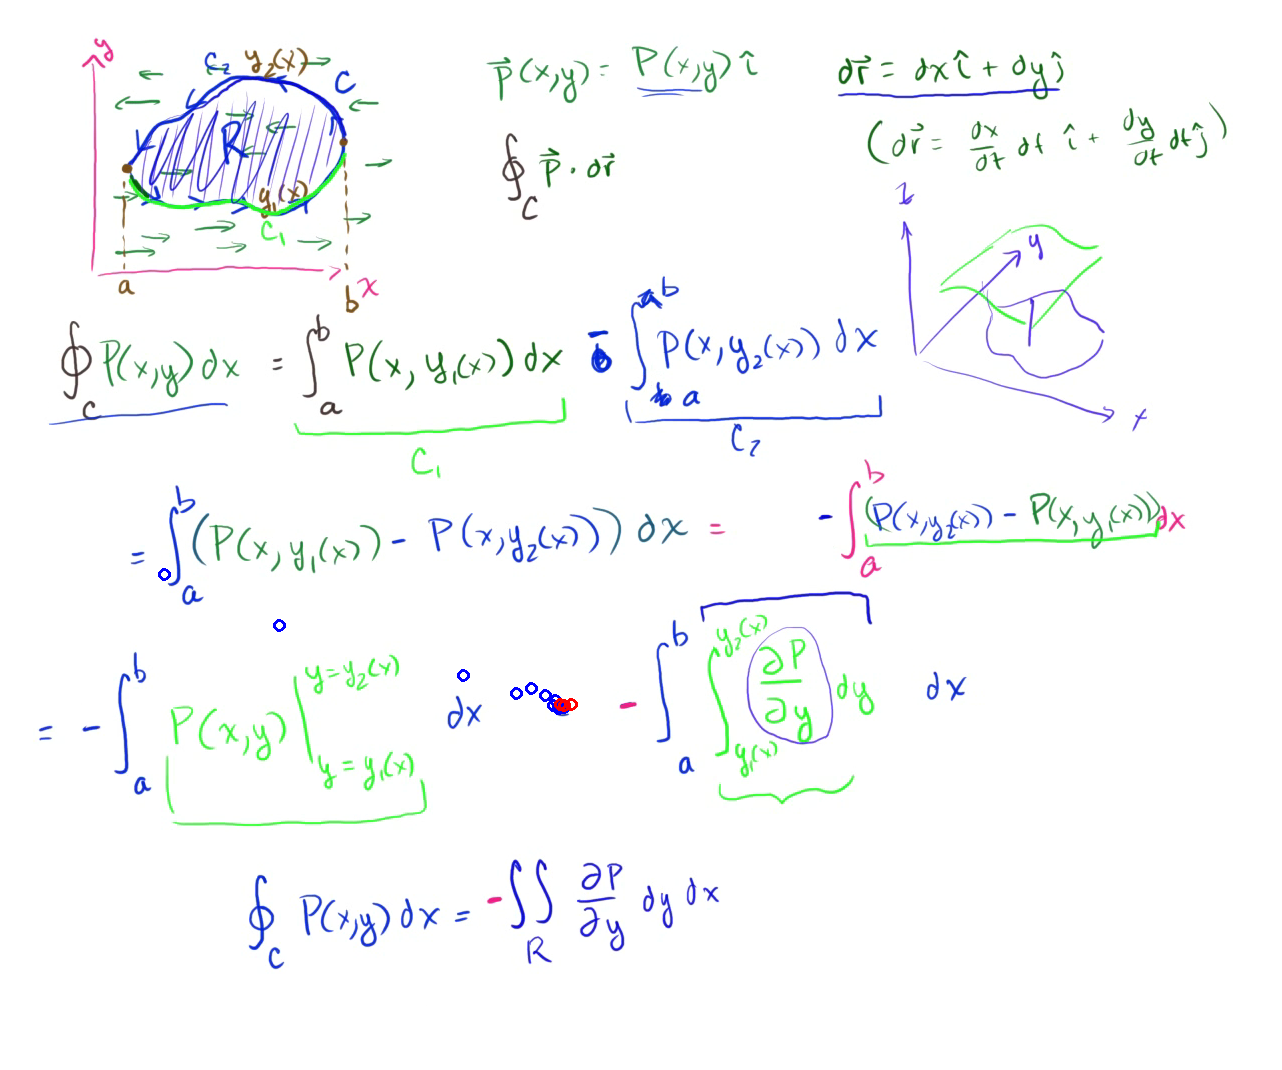 y
C₂ y₂(x)
C
R
y₁(x)
C₁
a
b x
P⃗(x,y) = P(x,y) î
∮_C P⃗ · dr⃗
dr⃗ = dx î + dy ĵ
(dr⃗ = dx/dt dt î + dy/dt dt ĵ)
z
y
x
∮_C P(x,y) dx = ∫_a^b P(x, y₁(x)) dx - ∫_a^b P(x, y₂(x)) dx
C₁
C₂
= ∫_a^b (P(x, y₁(x)) - P(x, y₂(x))) dx = - ∫_a^b (P(x,y₂(x)) - P(x, y₁(x))) dx
= - ∫_a^b P(x,y) |_{y = y₁(x)}^{y = y₂(x)} dx - ∫_a^b ∫_{y₁(x)}^{y₂(x)} ∂P/∂y dy dx
∮_C P(x,y) dx = - ∬_R ∂P/∂y dy dx